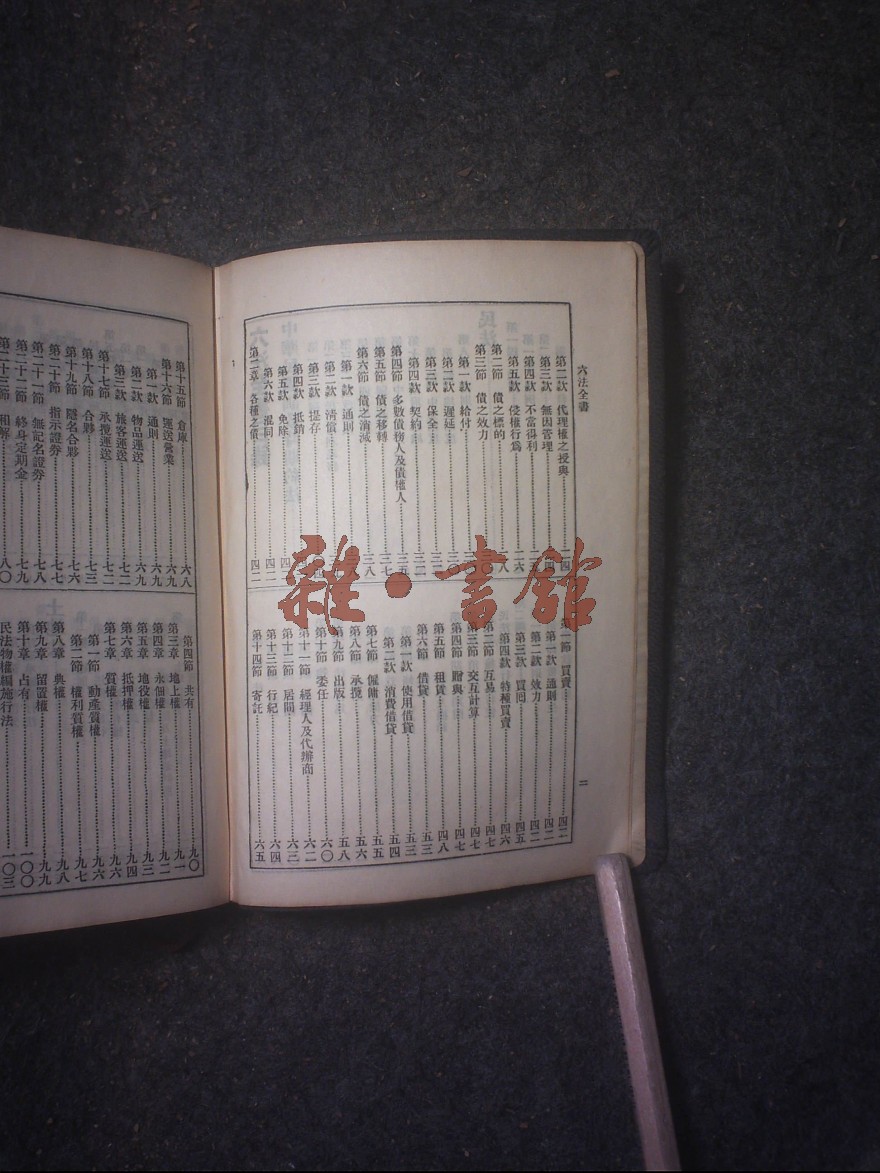 六法全書
第二款 代理權之授與
第三款 無因管理
第四款 不當得利
第五款 侵權行為 二六
第二節 債之標的
第三節 債之效力
第一款 給付
第二款 遲延
第三款 保全
第四款 契約
第四節 多數債務人及債權人
第五節 債之移轉
第六節 債之消滅
第一款 通則
第二款 清償
第三款 提存
第四款 抵銷
第五款 免除
第六款 混同 四二
第二章 各種之債 四二
第一節 買賣 四二
第一款 通則 四二
第二款 效力 四二
第三款 買回 四五
第四款 特種買賣 四六
第二節 互易 四七
第三節 交互計算 四七
第四節 贈與 四七
第五節 租賃 四八
第六節 借貸 五三
第一款 使用借貸 五三
第二款 消費借貸 五四
第七節 僱傭 五五
第八節 承攬 五六
第九節 出版 五八
第十節 委任 六〇
第十一節 經理人及代辦商 六二
第十二節 居間 六三
第十三節 行紀 六四
第十四節 寄託 六五
二
第十五節 倉庫 六八
第十六節 運送營業 六九
第一款 通則 六九
第二款 物品運送 六九
第三款 旅客運送 七二
第十七節 承攬運送 七二
第十八節 合夥 七三
第十九節 隱名合夥 七六
第二十節 指示證券 七七
第二十一節 無記名證券 七八
第二十二節 終身定期金 七九
第二十三節 和解 八〇
第四節 共有 九〇
第三章 地上權 九一
第四章 永佃權 九二
第五章 地役權 九三
第六章 抵押權 九四
第七章 質權 九六
第一節 動產質權 九六
第二節 權利質權 九七
第八章 典權 九八
第九章 留置權 九九
第十章 占有 一〇〇
民法物權編施行法 一〇三
雜·書館